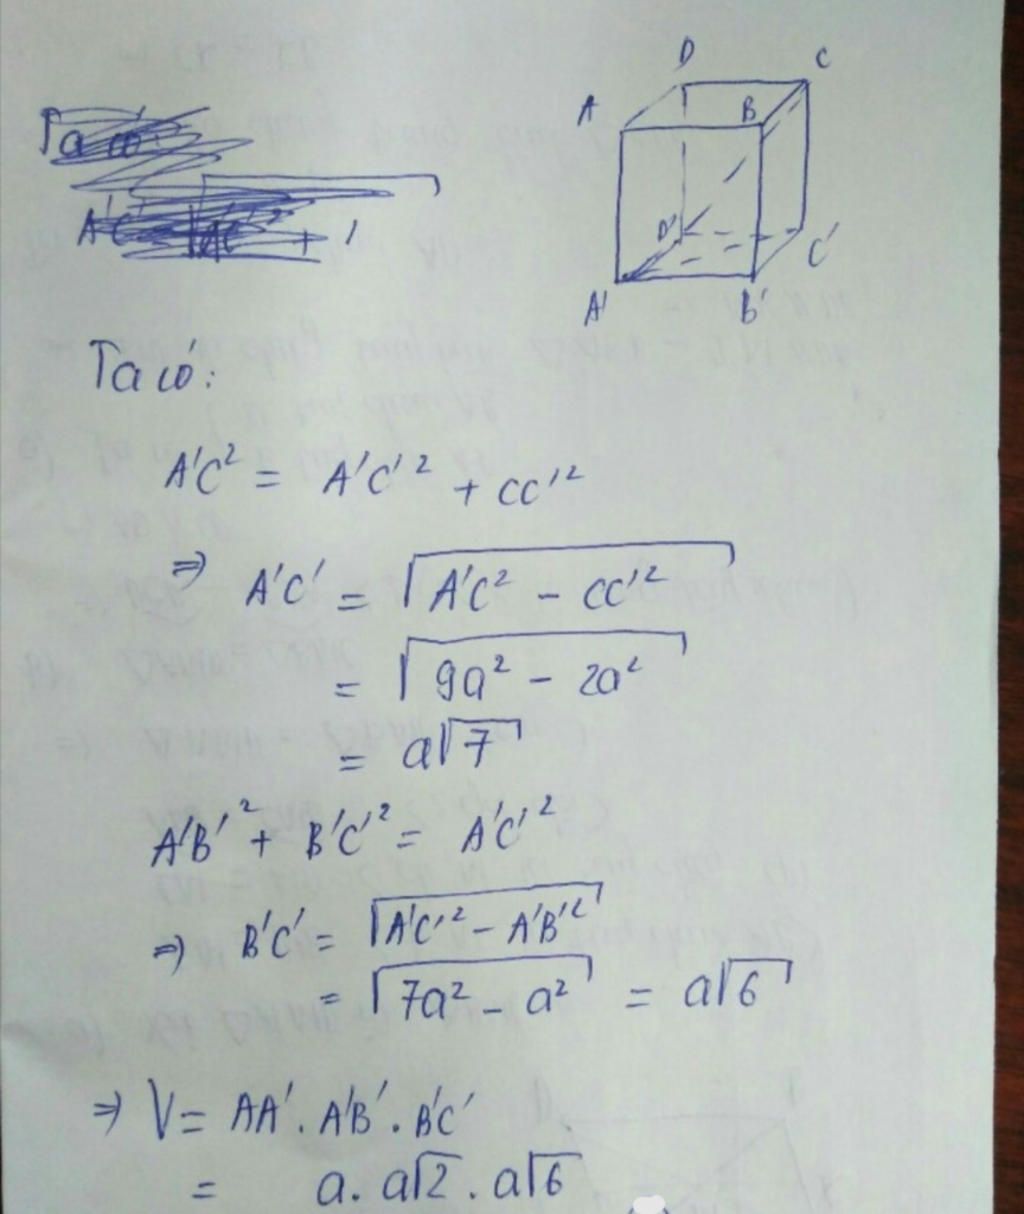 Ta có:
D C
A B
D' C'
A' B'
Ta có:
A'C² = A'C'² + CC'²
⇒ A'C' = √(A'C² - CC'²)
= √(9a² - 2a²)
= a√7
A'B'² + B'C'² = A'C'²
⇒ B'C' = √(A'C'² - A'B'²)
= √(7a² - a²) = a√6
⇒ V = AA' . A'B' . B'C'
= a . a√2 . a√6